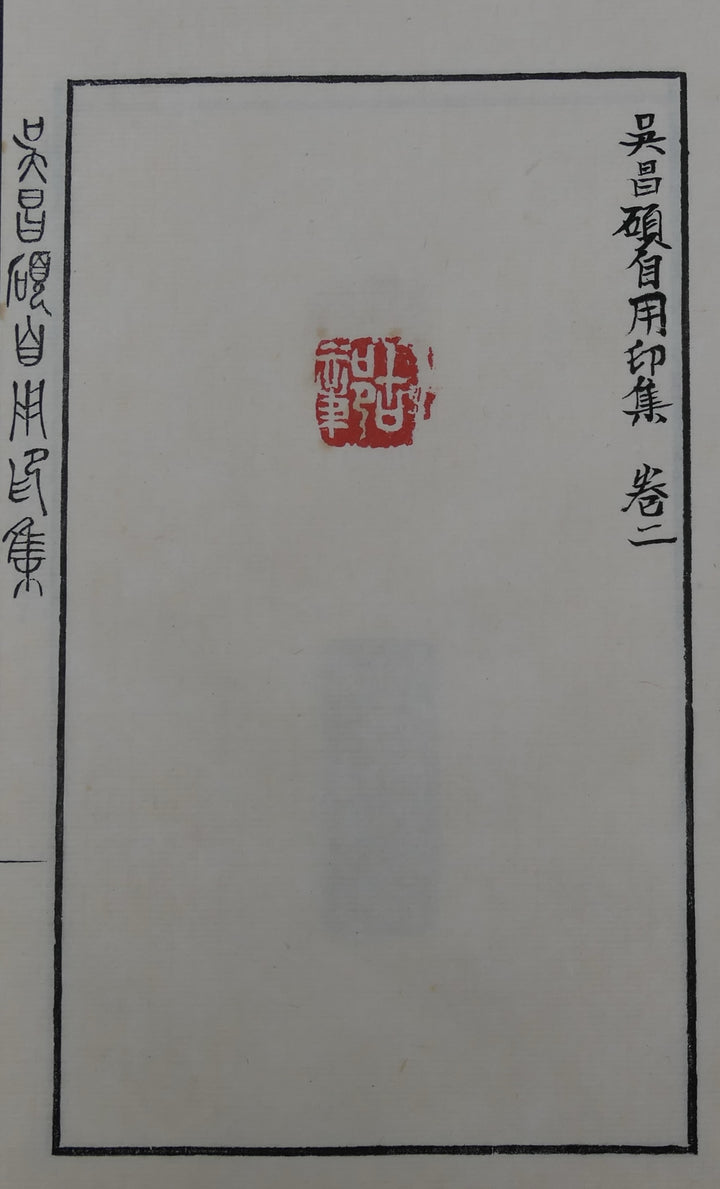 吳昌碩自用印集 卷二
吳昌碩自用印集